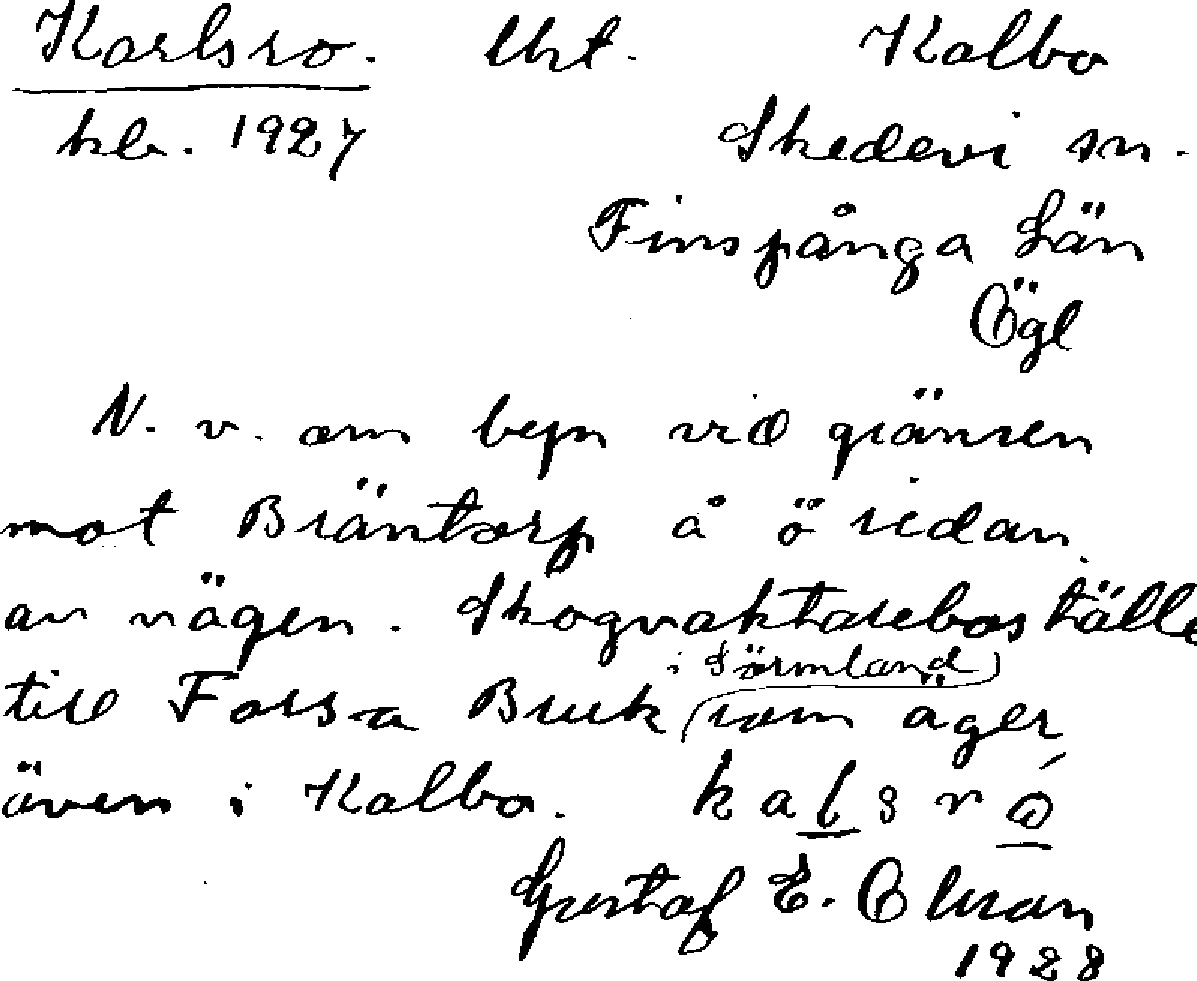 Karlsro. Urt. Kalbo
kb. 1927 Skedevi sn.
Finspånga Län
Ögl
N. v. om byn vid gränsen
mot Bräntorp å ö sidan
av vägen. Skogvaktareboställe
i Sörmland
till Forsa Bruk som äger
även i Kalbo. kalsró
Gustaf E. Olsson
1928